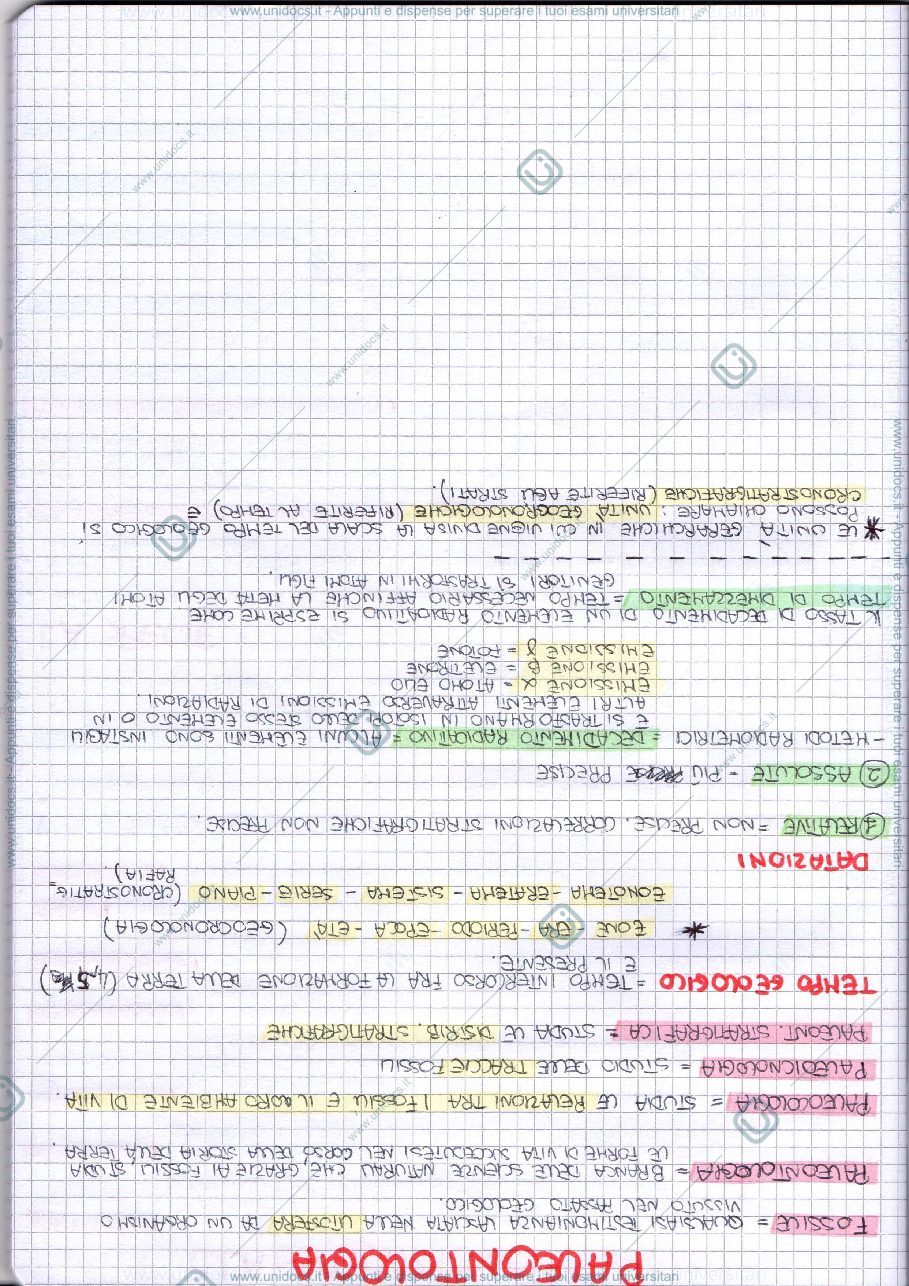 PALEONTOLOGIA
FOSSILE = QUALSIASI TESTIMONIANZA LASCIATA NELLA LITOSFERA DA UN ORGANISMO
VISSUTO NEL PASSATO GEOLOGICO.
PALEONTOLOGIA = BRANCA DELLE SCIENZE NATURALI CHE, GRAZIE AI FOSSILI, STUDIA
LE FORME DI VITA SUCCEDUTESI NEL CORSO DELLA STORIA DELLA TERRA.
PALEOECOLOGIA = STUDIA LE RELAZIONI TRA I FOSSILI E IL LORO AMBIENTE DI VITA.
PALEOICNOLOGIA = STUDIO DELLE TRACCE FOSSILI
PALEONT. STRATIGRAFICA = STUDIA LE DISTRIB. STRATIGRAFICHE
TEMPO GEOLOGICO = TEMPO INTERCORSO FRA LA FORMAZIONE DELLA TERRA (4,5
E IL PRESENTE.
* EONE - ERA - PERIODO - EPOCA - ETÀ (GEOCRONOLOGIA)
EONOTEMA - ERATEMA - SISTEMA - SERIE - PIANO (CRONOSTRATIG=
RAFIA).
DATAZIONI
1 RELATIVE = NON PRECISE. CORRELAZIONI STRATIGRAFICHE NON PRECISE.
2 ASSOLUTE - PIÙ PRECISE
- METODI RADIOMETRICI = DECADIMENTO RADIOATIVO = ALCUNI ELEMENTI SONO INSTABILI
E SI TRASFORMANO IN ISOTOPI DELLO STESSO ELEMENTO O IN
ALTRI ELEMENTI ATTRAVERSO EMISSIONI DI RADIAZIONI.
EMISSIONE α = ATOMO ELIO
EMISSIONE β = ELETTRONE
EMISSIONE γ = FOTONE
IL TASSO DI DECADIMENTO DI UN ELEMENTO RADIOATIVO SI ESPRIME COME
TEMPO DI DIMEZZAMENTO = TEMPO NECESSARIO AFFINCHÈ LA METÀ DEGLI ATOMI
GENITORI SI TRASFORMI IN ATOMI FIGLI.
* LE UNITÀ GERARCHICHE IN CUI VIENE DIVISA LA SCALA DEL TEMPO GEOLOGICO SI
POSSONO CHIAMARE: UNITÀ GEOCRONOLOGICHE (RIFERITE AL TEMPO) E
CRONOSTRATIGRAFICHE (RIFERITE AGLI STRATI).
www.unidocs.it - Appunti e dispense per superare i tuoi esami universitari
www.unidocs.it - Appunti e dispense per superare i tuoi esami universitari
www.unidocs.it - Appunti e dispense per superare i tuoi esami universitari
www.unidocs.it - Appunti e dispense per superare i tuoi esami universitari
www.unidocs.it
www.unidocs.it
www.unidocs.it
www.unidocs.it
www.unidocs.it
www.unidocs.it